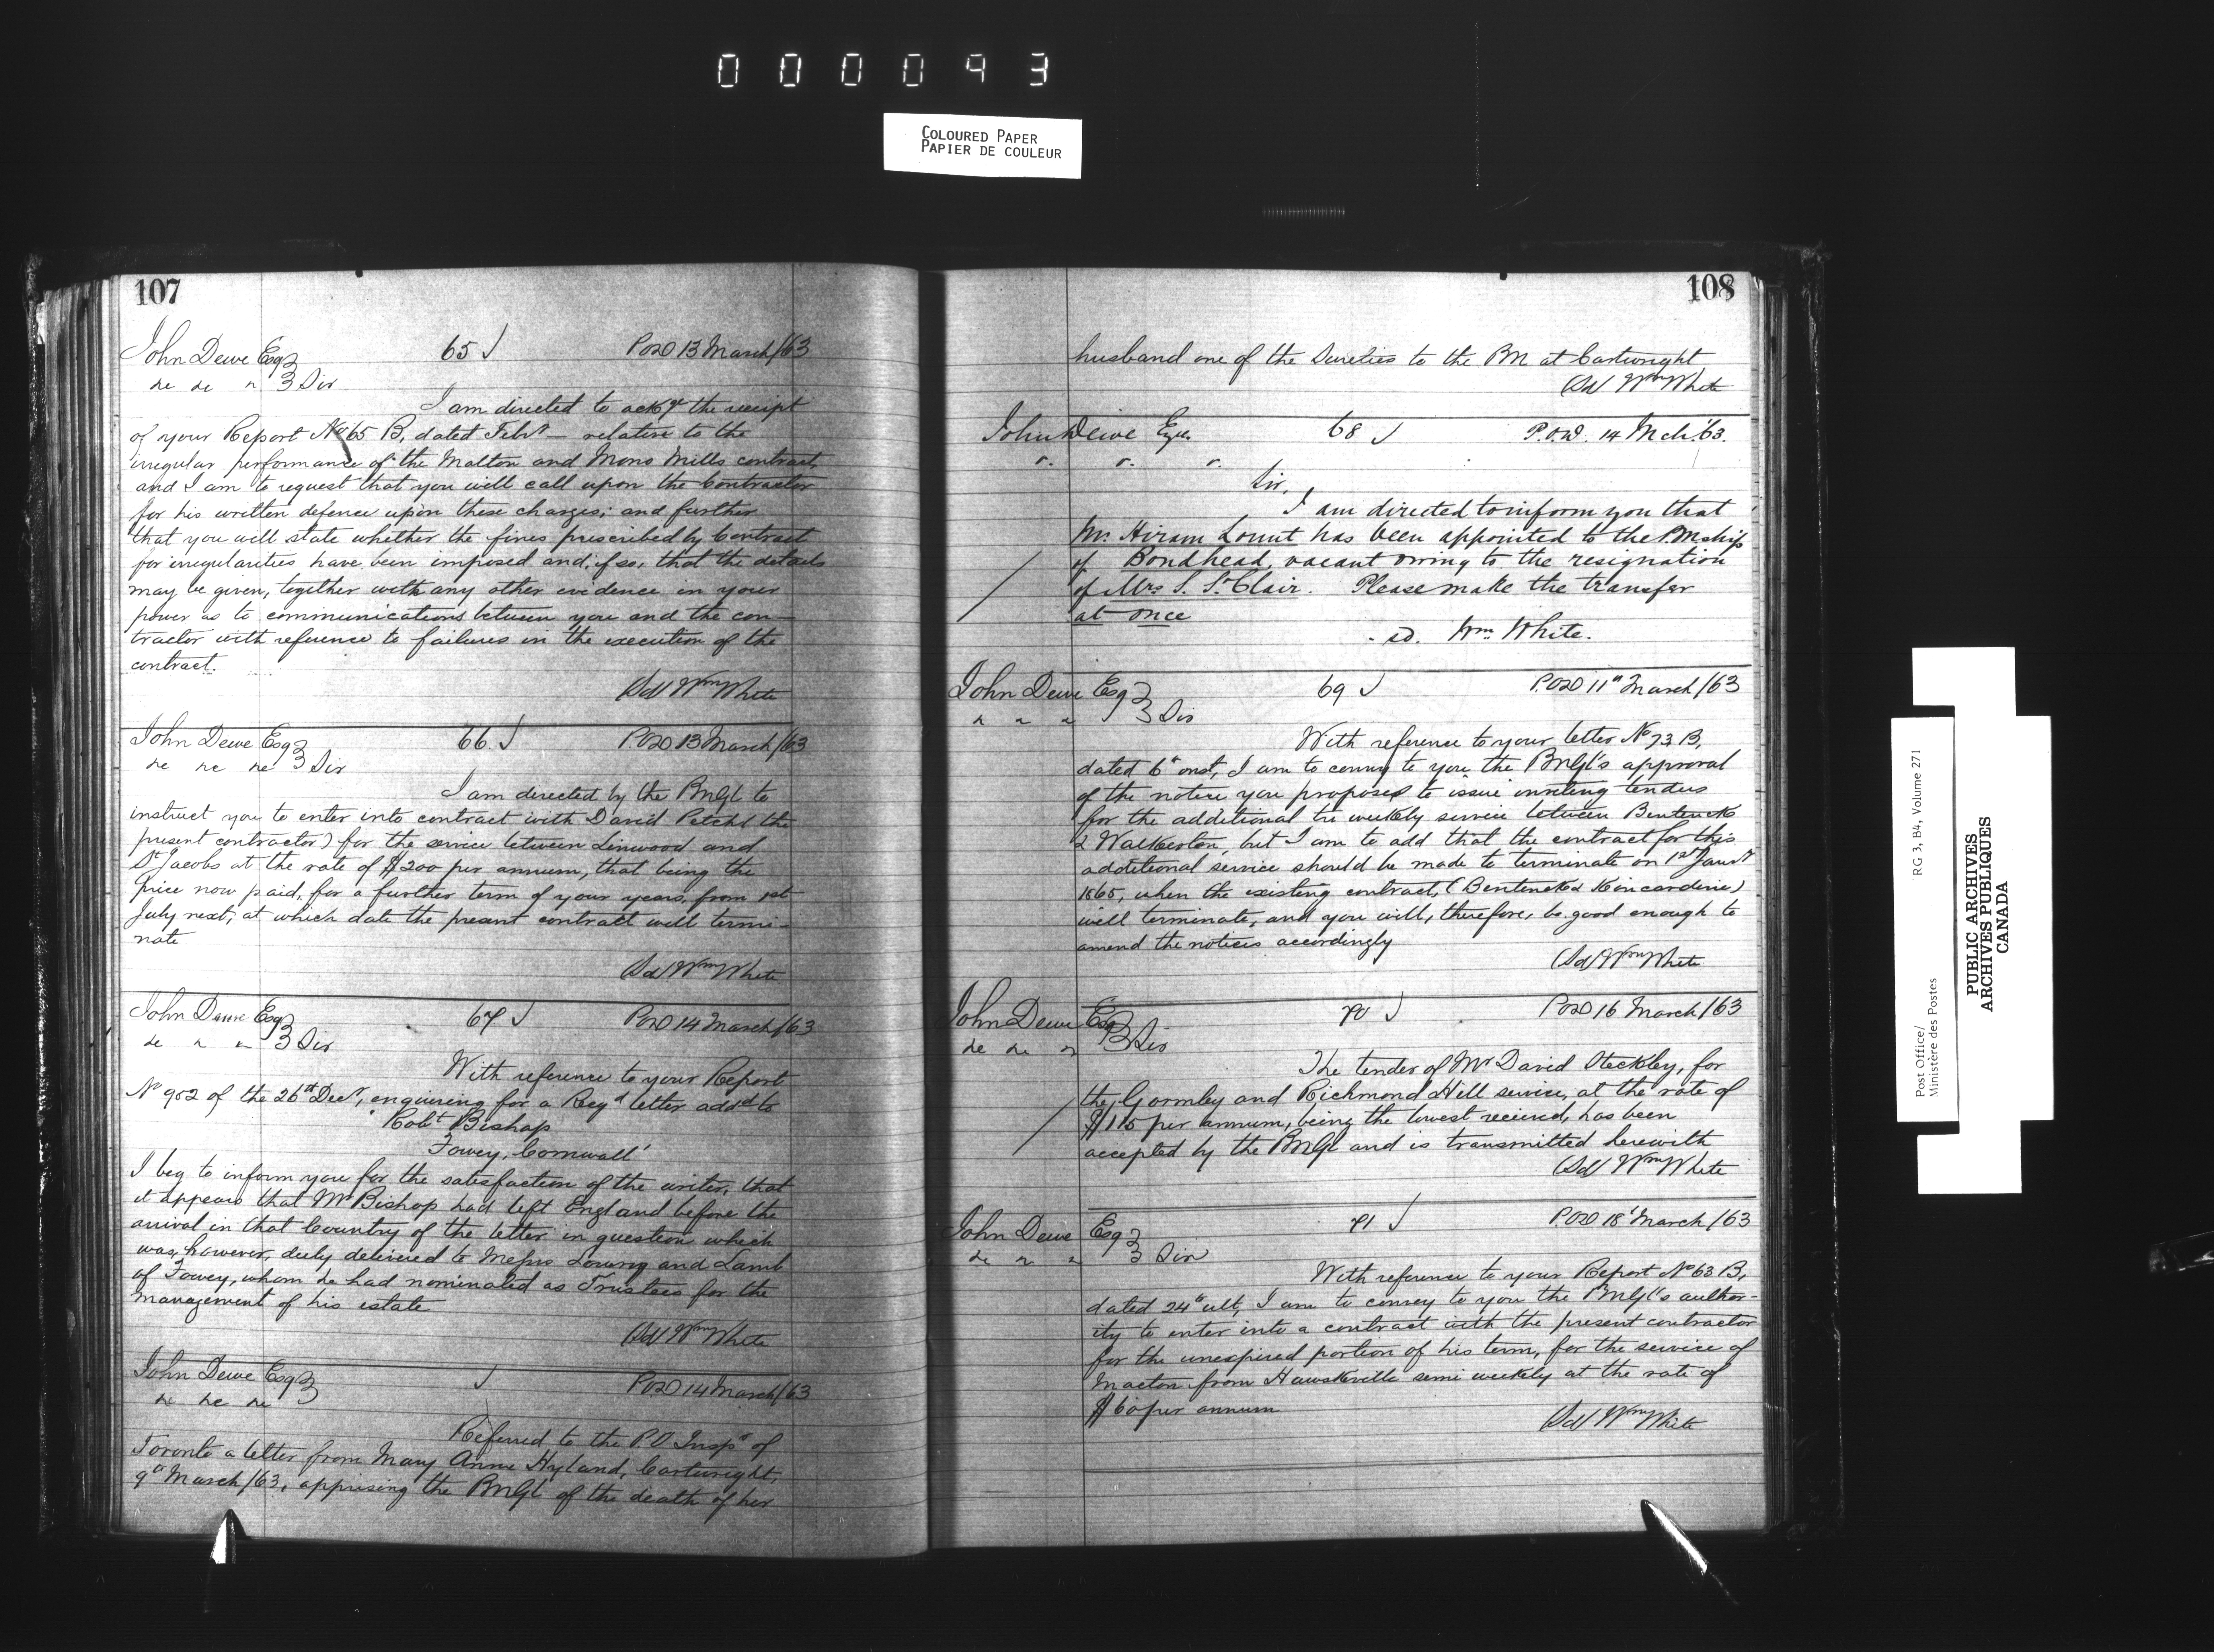 000093
COLOURED PAPER
PAPIER DE COULEUR
107
John Dewe Esq
65 J
POD 13 March/63
de de " 3 Div
I am directed to ackge the receipt
of your Report No 65 B, dated Febry — relative to the
irregular performance of the Malton and Mono Mills contract,
and I am to request that you will call upon the Contractor
for his written defence upon these charges; and further
that you will state whether the fines prescribed by Contract
for irregularities have been imposed and, if so, that the details
may be given, together with any other evidence in your
power as to communications between you and the con-
tractor with reference to failures in the execution of the
contract.
(Sd) Wm White
John Dewe Esq
66 J
POD 13 March/63
de de de 3 Div
I am directed by the PMGl to
instruct you to enter into contract with David Petcht the
present contractor) for the service between Linwood and
St Jacobs at the rate of $200 per annum, that being the
price now paid, for a further term of four years, from 1st
July next, at which date the present contract will termi-
nate
(Sd) Wm White
John Dewe Esq
67 J
POD 14 March/63
de " " 3 Div
With reference to your Report
No 902 of the 26th Decr, enquiring for a Regd letter addd to
"Robt Bishop
Fowey, Cornwall"
I beg to inform you for the satisfaction of the writer, that
it appears that Mr Bishop had left England before the
arrival in that Country of the letter in question which
was, however, duly delivered to Messrs Lowry and Lamb
of Fowey, whom he had nominated as Trustees for the
management of his estate
(Sd) Wm White
John Dewe Esq
J
POD 14 March/63
de de de 3
Referred to the P.O Inspr of
Toronto a letter from Mary Anne Hyland, Cartwright,
9th March/63, apprising the PMGl of the death of her
108
husband one of the Sureties to the PM at Cartwright
(Sd) Wm White
John Dewe Esqr
68 J
P.O.D. 14 Mch. '63.
". ". ".
Sir,
I am directed to inform you that
Mr. Hiram Lount has been appointed to the P.Mship
of Bondhead, vacant owing to the resignation
of Mrs S. St Clair. Please make the transfer
at once
sd. Wm White.
John Dewe Esq
69 J
P.OD 11th March/63
" " " 3 Div
With reference to your letter No 73 B,
dated 6th inst, I am to convey to you the PMGl's approval
of the notice you proposed to issue inviting tenders
for the additional tri weekly service between Bentinck
& Walkerton, but I am to add that the contract for this
additional service should be made to terminate on 1st Jany
1865, when the existing contract, (Bentinck & Kincardine)
will terminate, and you will, therefore, be good enough to
amend the notices accordingly
(Sd) Wm White
John Dewe Esq
70 J
POD 16 March/63
de de " 3 Div
The tender of Mr David Steckley, for
the Gormley and Richmond Hill service, at the rate of
$115 per annum, being the lowest received, has been
accepted by the PMGl and is transmitted herewith
(Sd) Wm White
John Dewe Esq
71 J
P.OD 18' March/63
de " " 3 Div
With reference to your Report No 63 B,
dated 24th ult, I am to convey to you the PMGl's author-
ity to enter into a contract with the present contractor
for the unexpired portion of his term, for the service of
Macton from Hawksville semi weekly at the rate of
$60 per annum
(Sd) Wm White
RG 3, B4, Volume 271
Post Office/
Ministère des Postes
PUBLIC ARCHIVES
ARCHIVES PUBLIQUES
CANADA